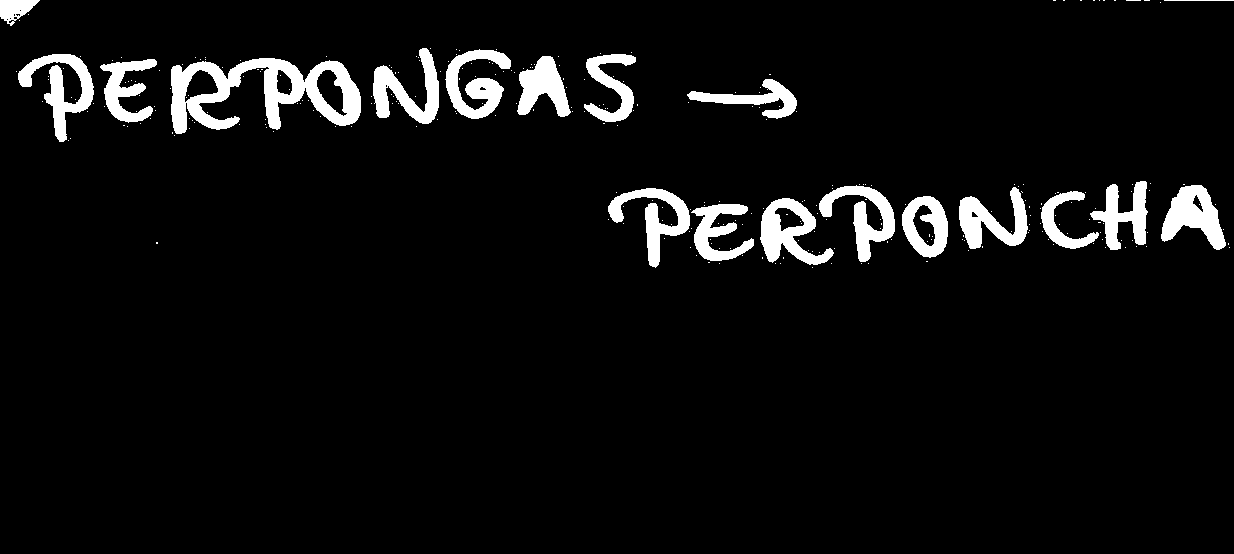 PERPONGAS →
PERPONCHA